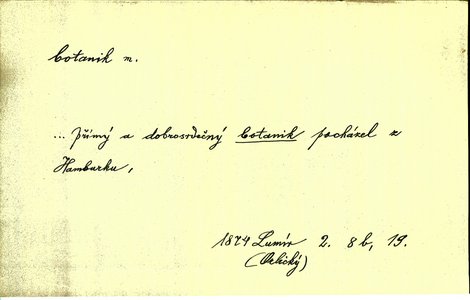 botanik m.
... přímý a dobrosrdečný botanik pocházel z
Hamburku,
1874 Lumír 2. 8b, 19.
(Orlický)